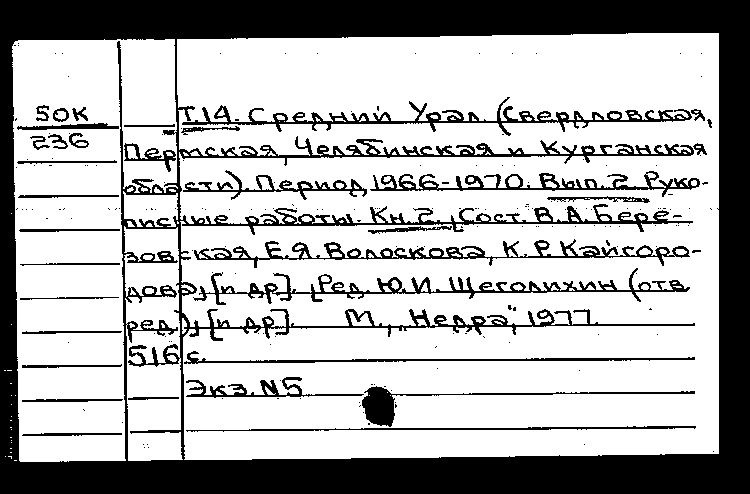 50К
236
Т.14. Средний Урал (Свердловская,
Пермская, Челябинская и Курганская
области). Период 1966-1970. Вып. 2. Руко-
писные работы. Кн. 2. [Сост. В.А. Бере-
зовская, Е.Я. Волоскова, К.Р. Кайгоро-
дова] [и др]. [Ред. Ю.И. Щеголихин (отв.
ред.)] [и др]. М., „Недра", 1977.
516 с.
Экз. N5